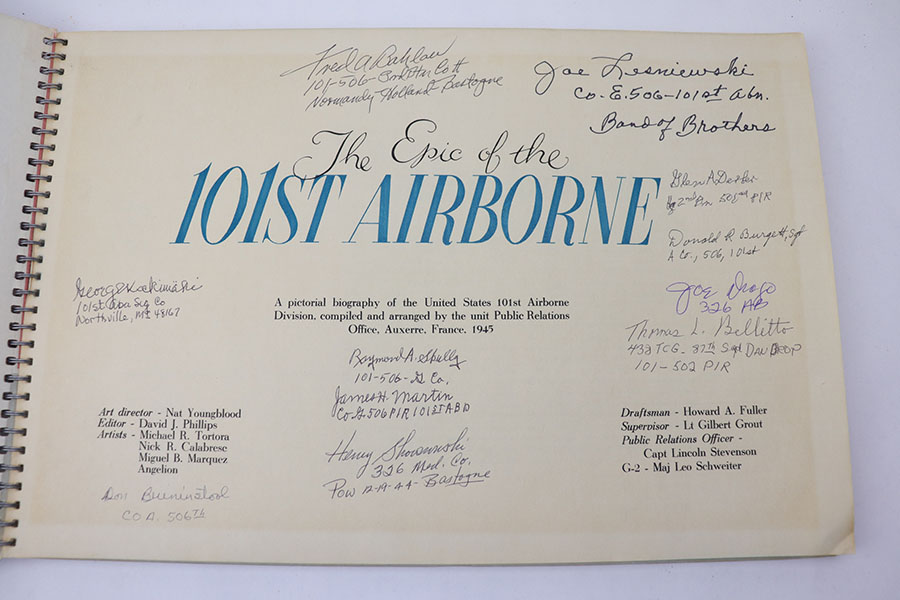 Fred A Bahlau
101-506- 3rd
Normandy Holland Bastogne
Joe Lesniewski
Co. E. 506-101st Abn.
Band of Brothers
The Epic of the
101ST AIRBORNE
Glen A Derber
2nd Bn 501st PIR
Donald R. Burgett, Sgt
A Co., 506, 101st
George Koskimaki
101st Aba Sig Co
Northville, Mi 48167
A pictorial biography of the United States 101st Airborne
Division, compiled and arranged by the unit Public Relations
Office, Auxerre, France, 1945
Joe Drago
326 AB
Thomas L. Bellitto
438 TCG - 87th Sqd Dan Drop
101-502 PIR
Raymond A. Skully
101-506- G Co.
James H. Martin
Co G 506 PIR 101ST ABD
Henry
326 Med. Co.
POW 12-19-44- Bastogne
Art director - Nat Youngblood
Editor - David J. Phillips
Artists - Michael R. Tortora
Nick R. Calabrese
Miguel B. Marquez
Angelion
Draftsman - Howard A. Fuller
Supervisor - Lt Gilbert Grout
Public Relations Officer -
Capt Lincoln Stevenson
G-2 - Maj Leo Schweiter
Don
CO A. 506TH